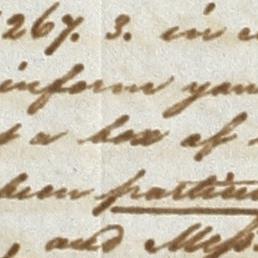 267. 3. in
inform you
a box of
been particu
, and Mess.